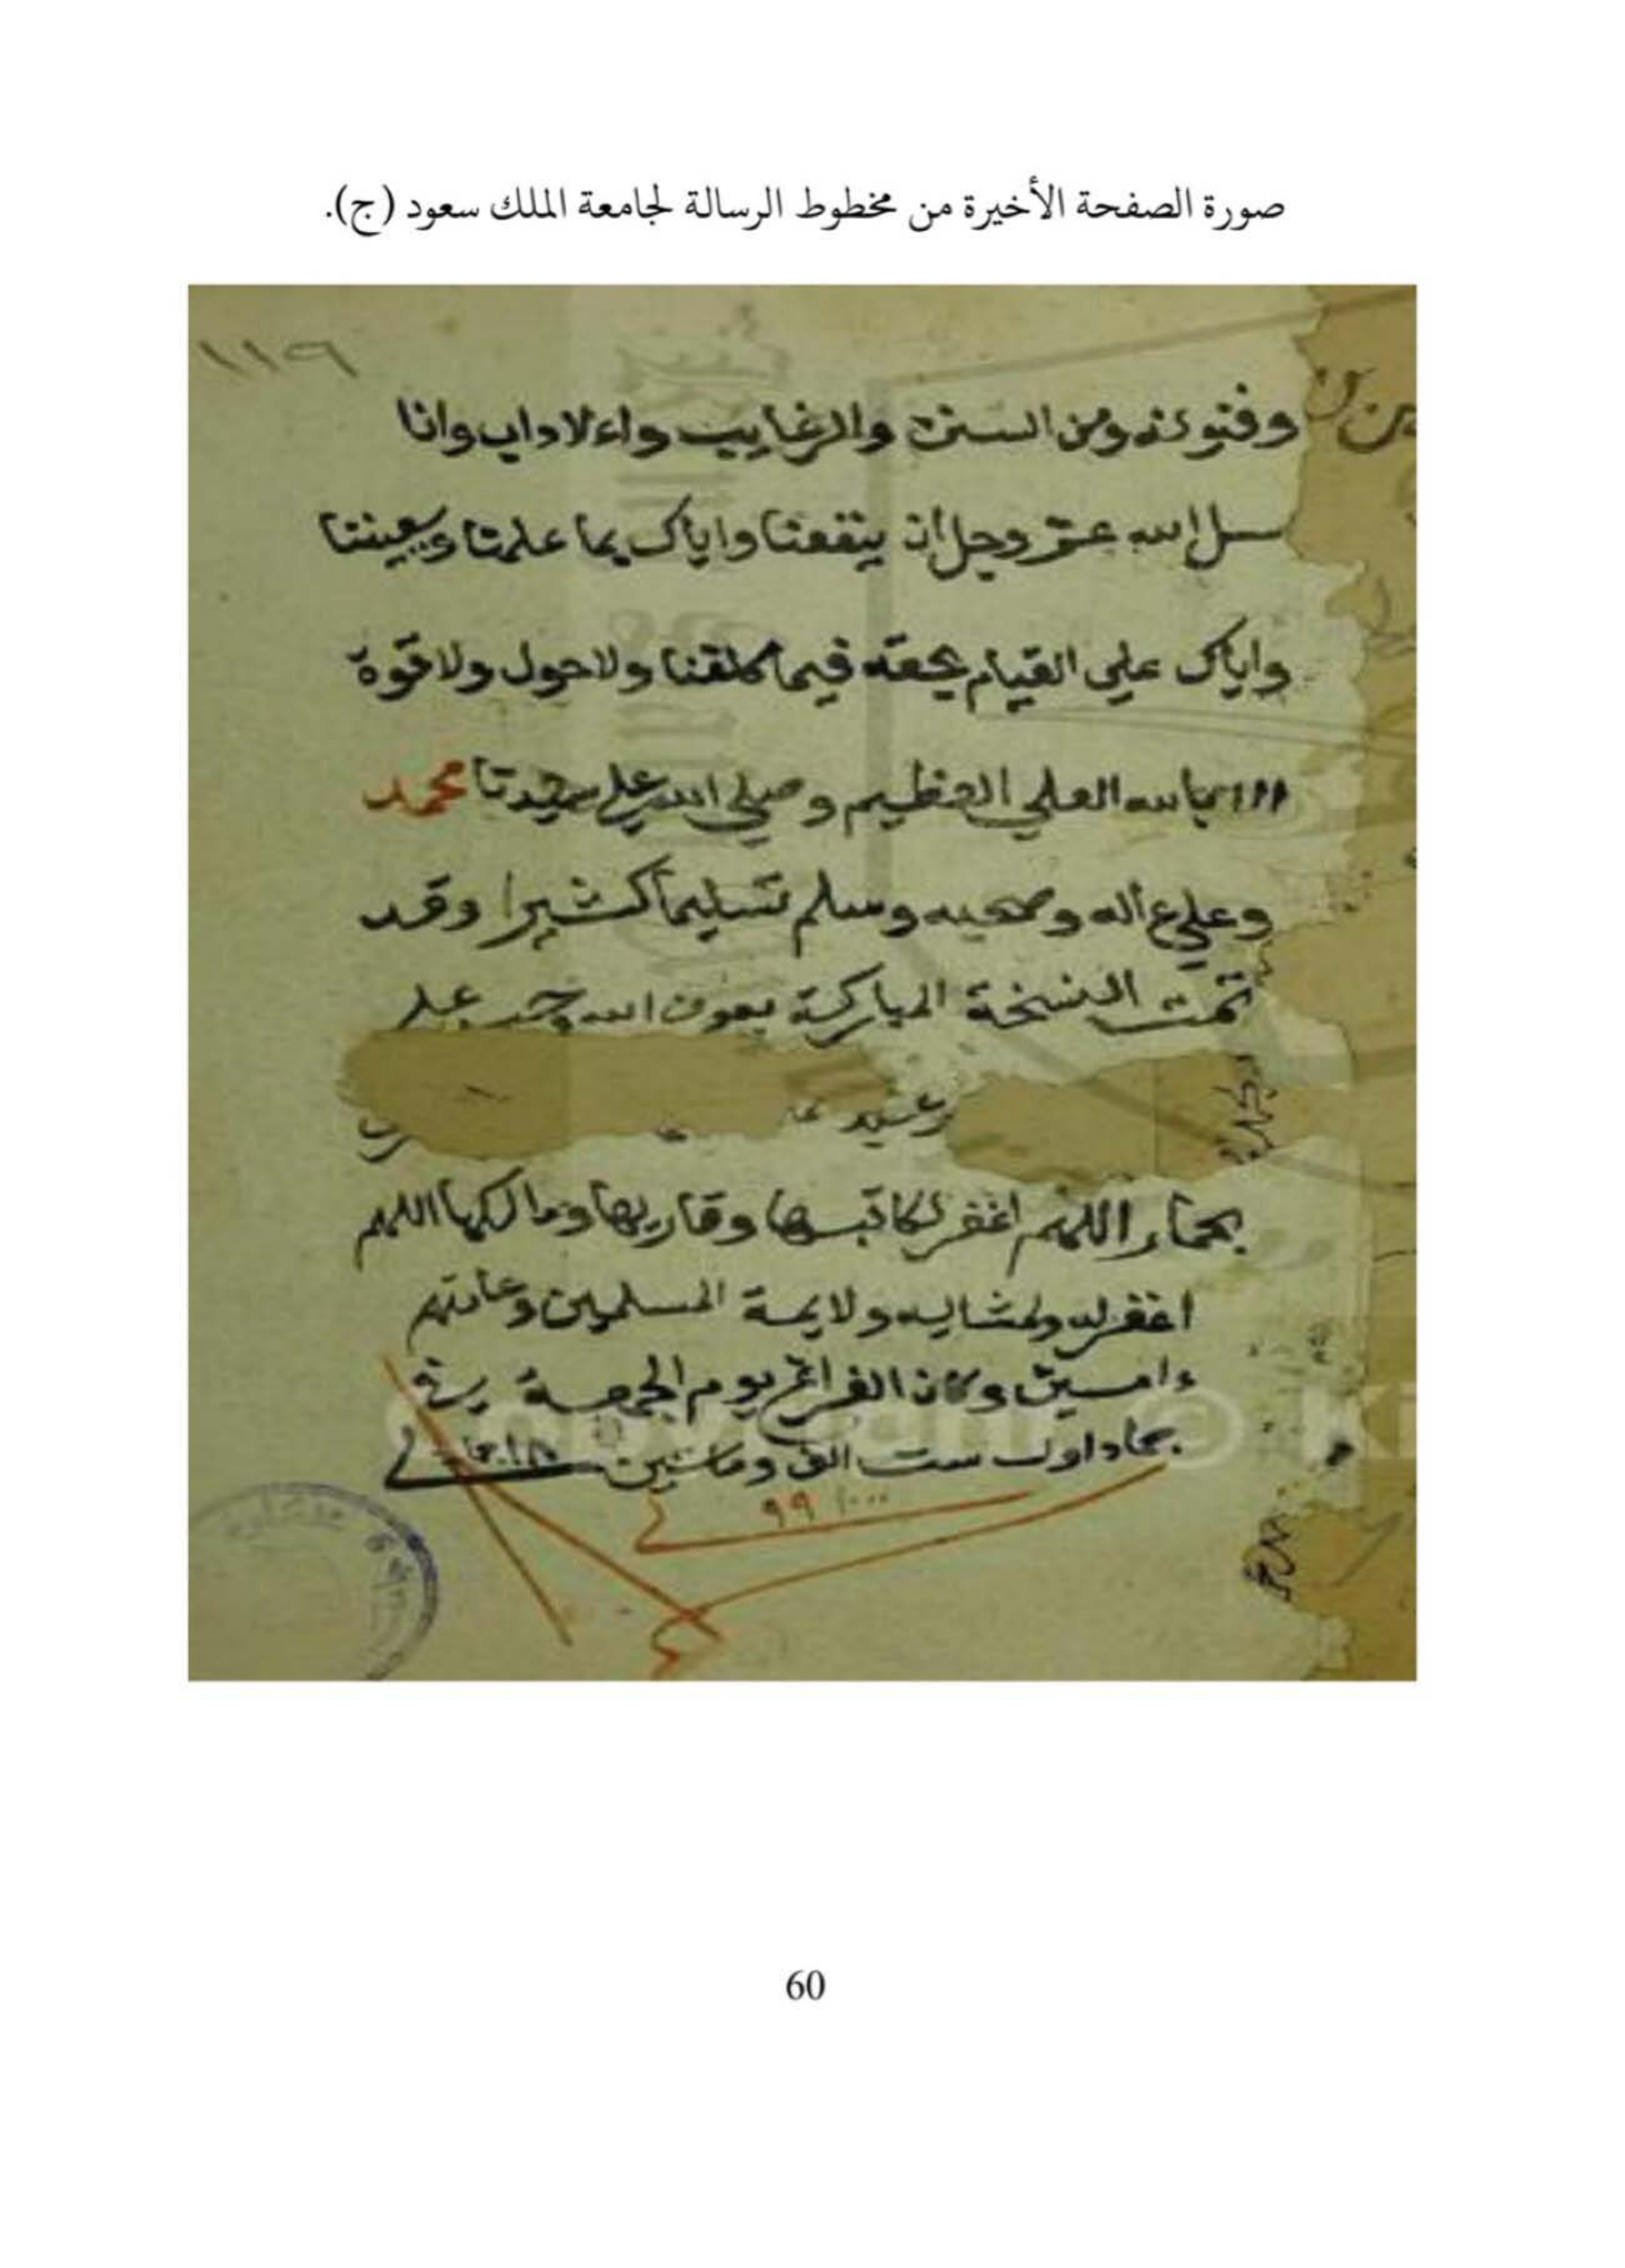 صورة الصفحة الأخيرة من مخطوط الرسالة لجامعة الملك سعود (ج).
١١٩
وفنونه ومن السنن والرغايب والاداب وانا
سل الله عز وجل ان ينفعنا واياك بما علمنا ويعيننا
واياك على القيام بحقه فيما كلفنا ولا حول ولا قوة
الا بالله العلي العظيم وصلى الله على سيدنا محمد
وعلى ءاله وصحبه وسلم تسليما كثيرا وقد
تمت النسخة المباركة بعون الله على
اللهم اغفر لكاتبها وقاريها ومالكها اللهم
اغفر له ولمشايه ولايمة المسلمين وعامتهم
ءامين وكان الفراغ يوم الجمعة
اول ست الف وماتين
٩٩
60